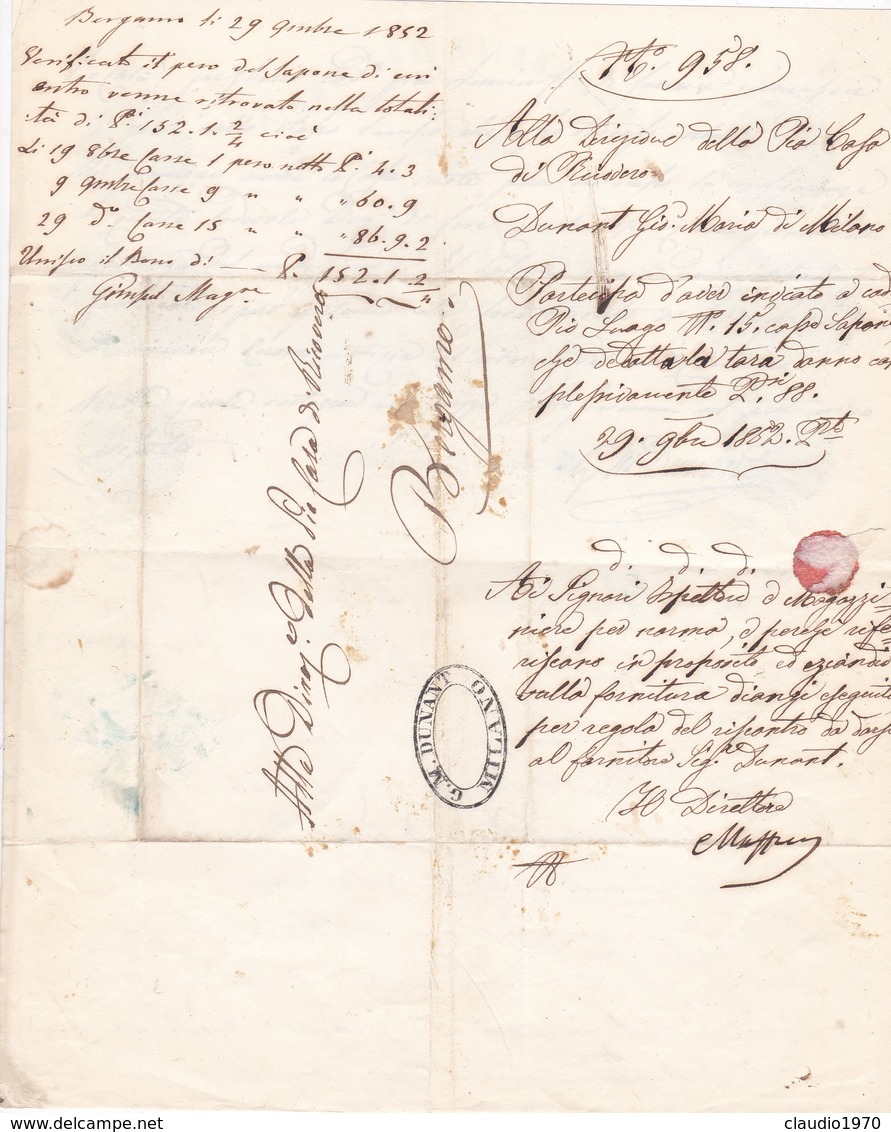 Bergamo li 29 9mbre 1852
Verificato il peso del Sapone di cui
entro venne ritrovato nella totali:
tà di Pi. 152.1.2/4 cioè
Li 19 8bre Casse 1 peso netto Pi. 4.3
9 9mbre Casse 9 " " " 60.9
29 do. Casse 15 " " " 86.9.2
Unisco il Bono di — P. 152.1.2/4
Gimpel Magre
No. 958.
Alla Direzione della Pia Casa
di Ricovero
Dunant Gio. Maria di Milano
Partecipa d'aver inviato a cod
Pio Luogo No. 15. casse Sapon
che detratta la tara danno com
plessivamente Pi. 88.
29. 9bre 1852. Pto
d. d. d.
Ai Signori Ispettore e Magazzi-
niere per norma, e perchè rife-
riscano in proposito ed eziandio
sulla fornitura dianzi eseguita
per regola del riscontro da darsi
al fornitore Sigr. Dunant.
Il Direttore
Alla Direze. della Pia Casa di Ricovero
Bergamo.
G. M. DUNANT MILANO
delcampe.net
claudio1970